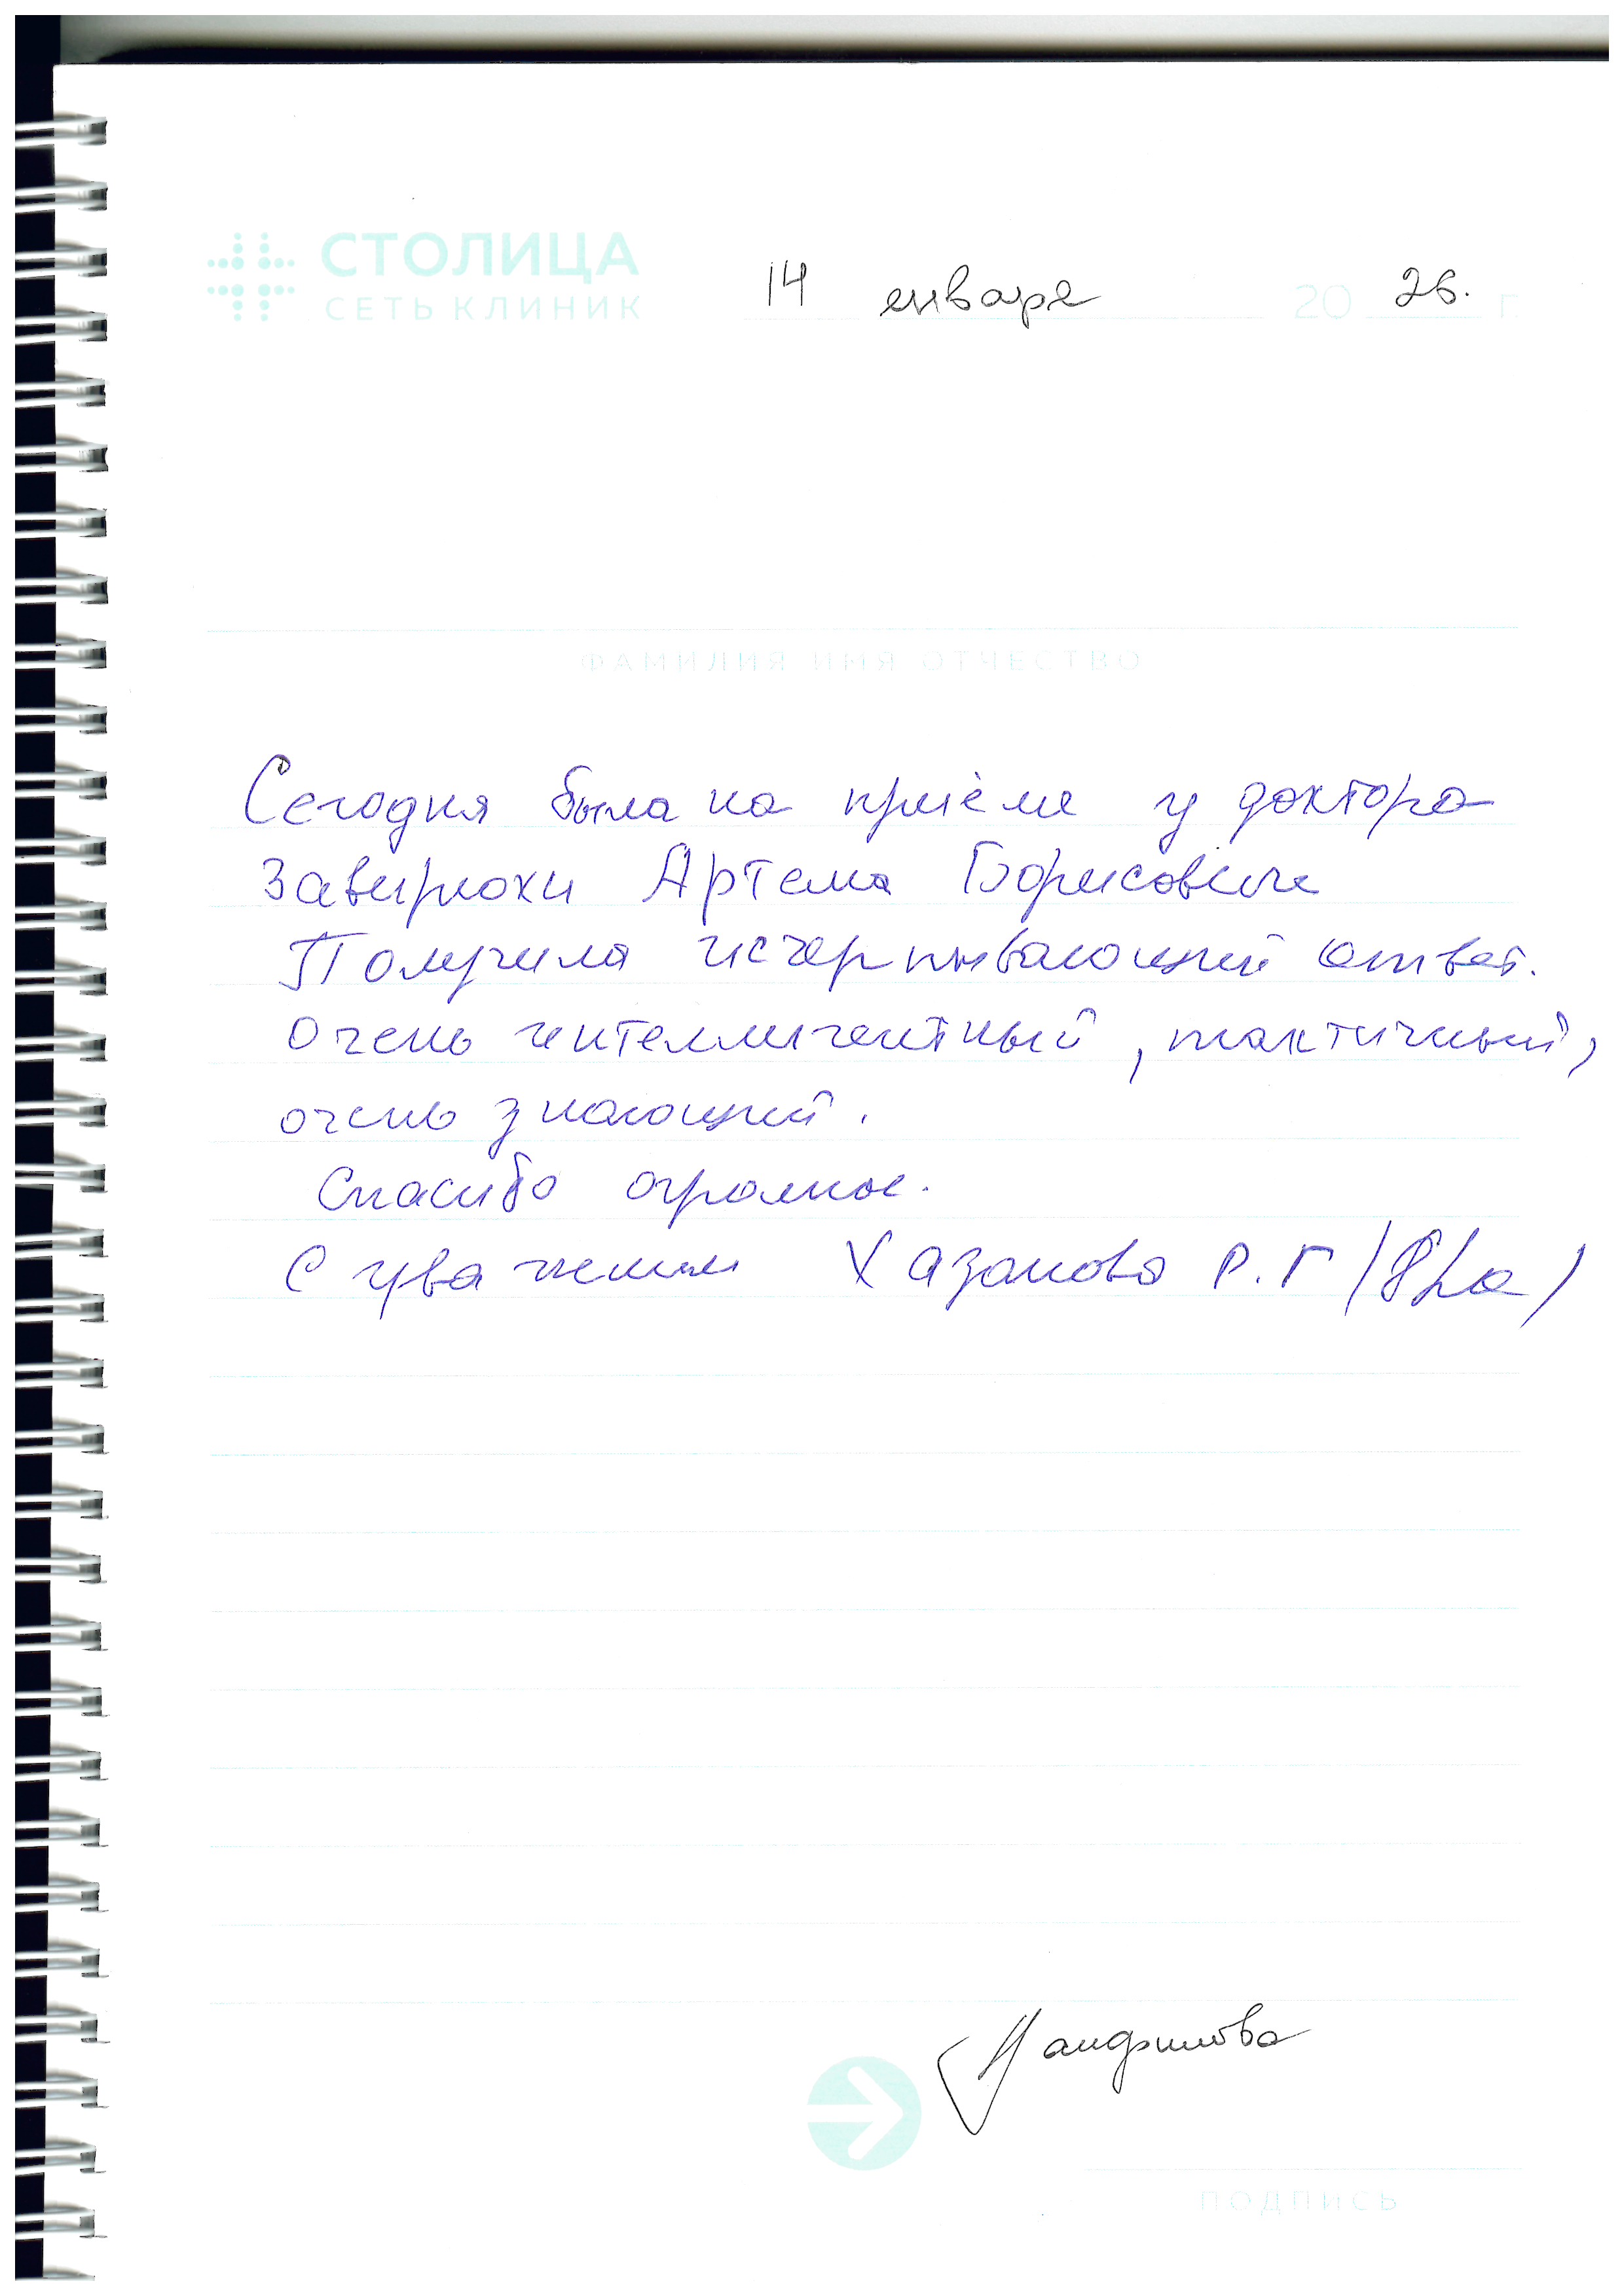 СТОЛИЦА
СЕТЬ КЛИНИК
14 января 20 26. г.
ФАМИЛИЯ ИМЯ ОТЧЕСТВО
Сегодня была на приёме у доктора
Завирюхи Артема Борисовича
Получила исчерпывающий ответ.
Очень интеллигентный, тактичный,
очень знающий.
Спасибо огромное.
С уважением Хазанова Р.Г
Панфилова
ПОДПИСЬ